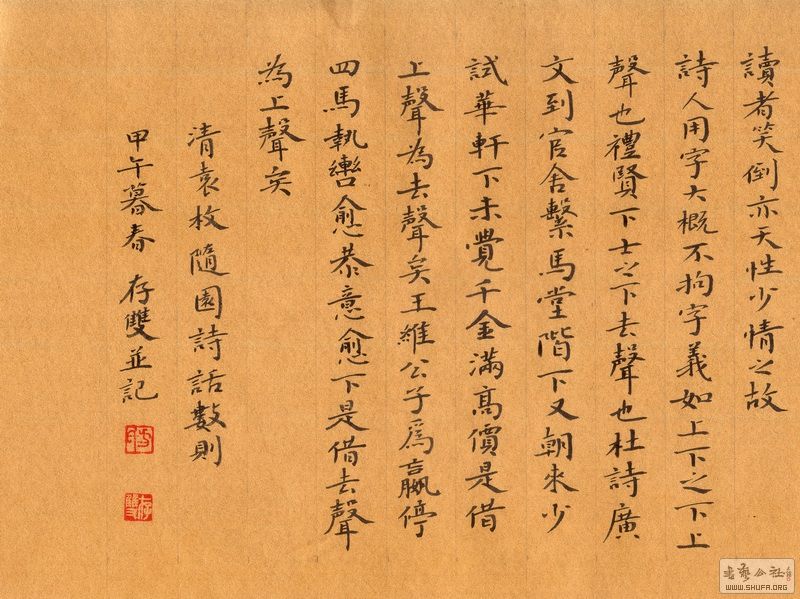 讀者笑倒亦天性少情之故
詩人用字大概不拘字義如上下之下上
聲也禮賢下士之下去聲也杜詩廣
文到官舍繫馬堂階下又朝來少
試華軒下未覺千金滿高價是借
上聲為去聲矣王維公子爲嬴停
四馬執轡愈恭意愈下是借去聲
為上聲矣
清袁枚隨園詩話數則
甲午暮春 存雙並記
存雙
书艺公社
WWW.SHUFA.ORG